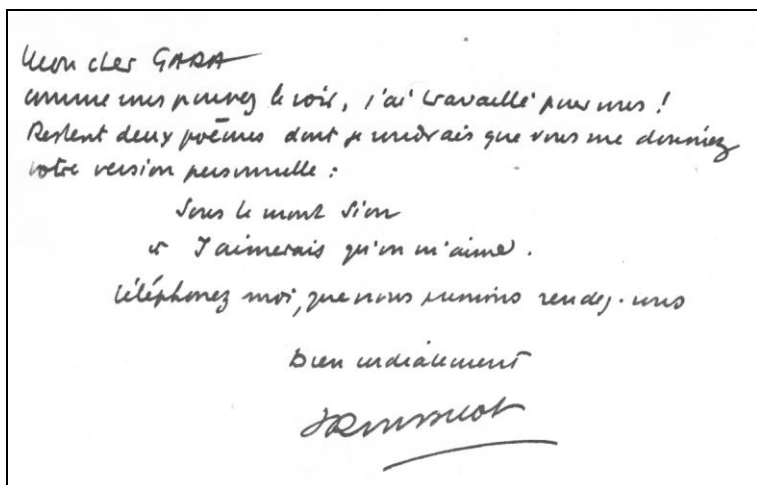 Mon cher GARA
comme vous pouvez le voir, j'ai travaillé pour vous !
Restent deux poèmes dont je voudrais que vous me donniez
votre version personnelle :
Sous le mont Sion
et J'aimerais qu'on m'aime.
téléphonez moi, que nous prenions rendez-vous
bien cordialement
JRousselot